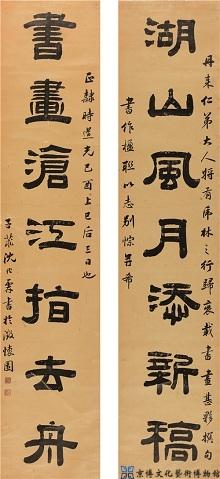 丹来仁弟大人將有虎林之行歸裝載書畫甚夥撰句
湖山風月添新稿
書作楹聯以志別悰并希
正隸時道光己酉上巳后三日也
書畫滄江指去舟
沈兆霖書於澂懷園
京博文化藝術博物館